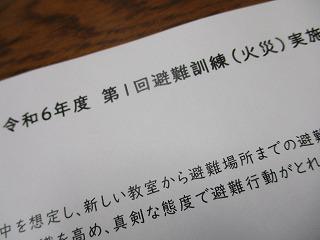 令和6年度 第1回避難訓練(火災)実施
中を想定し、新しい教室から避難場所までの避難
を高め、真剣な態度で避難行動がとれ